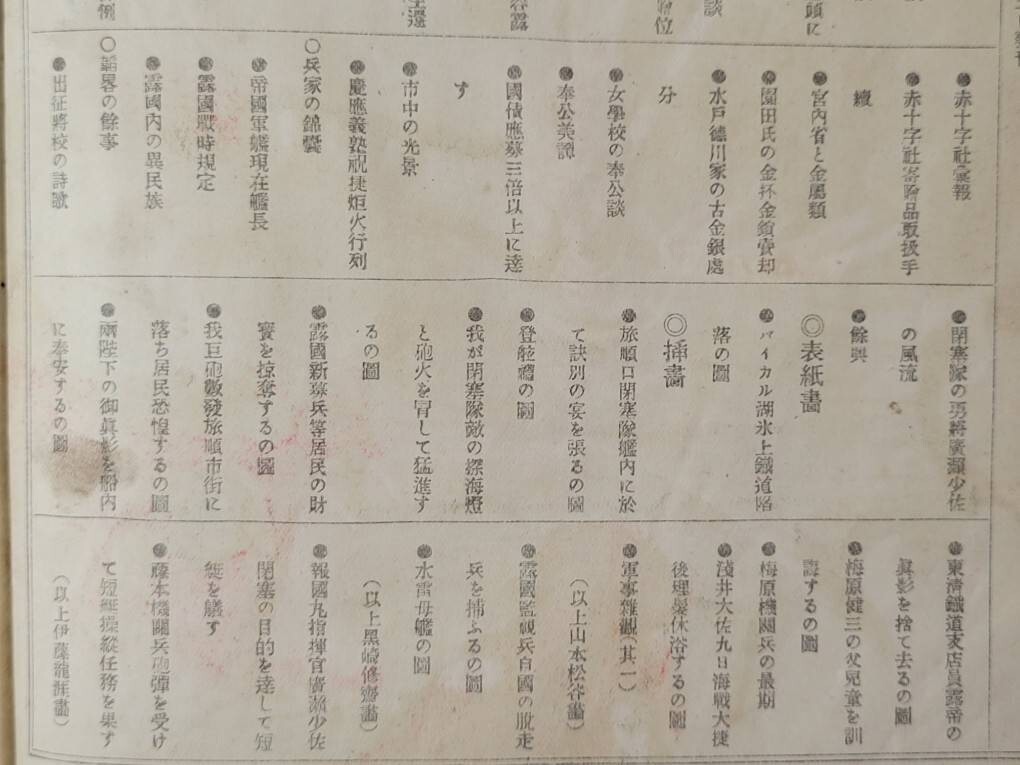 ●赤十字社彙報
●赤十字社寄贈品取扱手
續
●宮内省と金屬類
●園田氏の金杯金鎖賣却
●水戸徳川家の古金銀處
分
●女學校の奉公談
●奉公美譚
●國債應募三倍以上に達
す
●市中の光景
●慶應義塾祝捷炬火行列
○兵家の錦囊
●帝國軍艦現在艦長
●露國戰時規定
●露國内の異民族
○韜畧の餘事
●出征將校の詩歌
●閉塞隊の勇將廣瀬少佐
の風流
●餘興
◎表紙畵
●バイカル湖氷上鐵道陷
落の圖
◎挿畵
●旅順口閉塞隊艦内に於
て訣別の宴を張るの圖
●登舷禮の圖
●我が閉塞隊敵の探海燈
と砲火を冒して猛進す
るの圖
●露國新募兵等居民の財
寳を掠奪するの圖
●我巨砲數發旅順市街に
落ち居民恐惶するの圖
●兩陛下の御眞影を船内
に奉安するの圖
●東清鐵道支店員露帝の
眞影を捨て去るの圖
●梅原健三の父兒童を訓
誨するの圖
●梅原機關兵の最期
●淺井大佐九日海戰大捷
後理髮休浴するの圖
●軍事雜觀(其一)
(以上山本松谷畵)
●露國監視兵自國の脱走
兵を捕ふるの圖
●水雷母艦の圖
(以上黑崎修齋畵)
●報國丸指揮官廣瀬少佐
閉塞の目的を達して短
艇を艤す
●藤本機關兵砲彈を受け
て短艇操縱任務を果す
(以上伊藤龍涯畵)